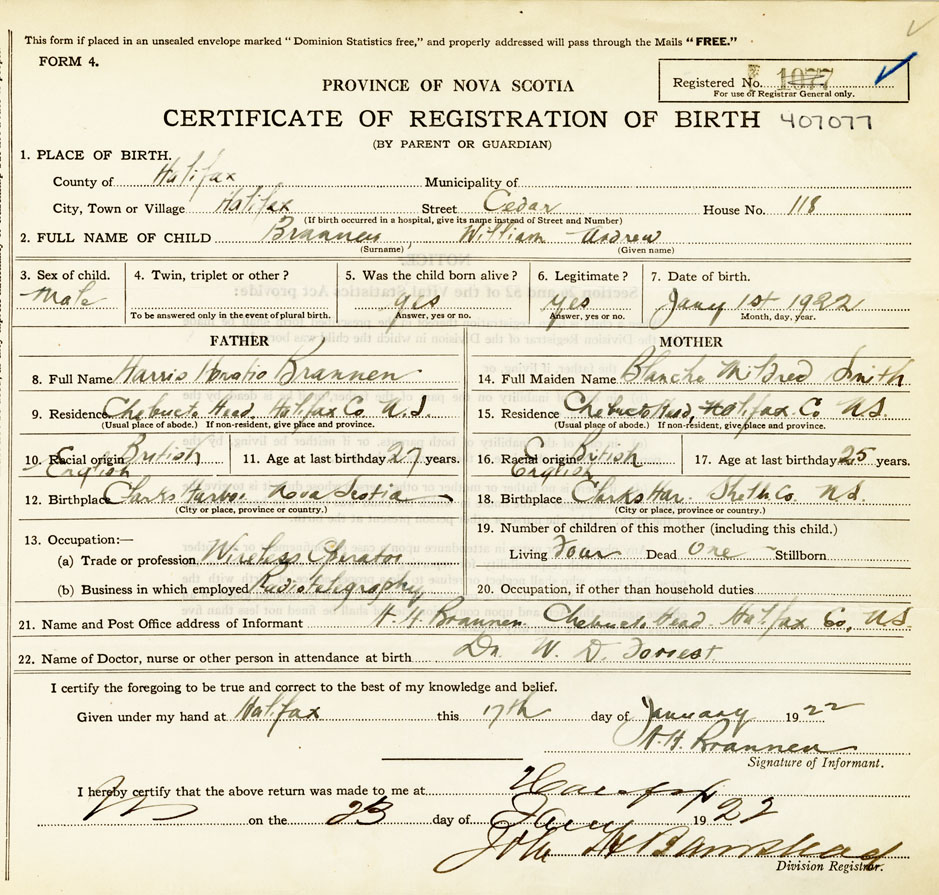 This form if placed in an unsealed envelope marked "Dominion Statistics free," and properly addressed will pass through the Mails "FREE."
FORM 4.
Registered No. 1077
For use of Registrar General only.
PROVINCE OF NOVA SCOTIA
CERTIFICATE OF REGISTRATION OF BIRTH 407077
(BY PARENT OR GUARDIAN)
1. PLACE OF BIRTH.
County of Halifax Municipality of
City, Town or Village Halifax Street Cedar House No. 118
(If birth occurred in a hospital, give its name instead of Street and Number)
2. FULL NAME OF CHILD Brannen, William Andrew
(Surname) (Given name)
3. Sex of child. 4. Twin, triplet or other? 5. Was the child born alive? 6. Legitimate? 7. Date of birth.
Male yes yes Jany 1st 1922
To be answered only in the event of plural birth. Answer, yes or no. Answer, yes or no. Month, day, year.
FATHER
8. Full Name Harris Horatio Brannen
9. Residence Chebucto Head, Halifax Co N.S.
(Usual place of abode.) If non-resident, give place and province.
10. Racial origin British 11. Age at last birthday 27 years.
English
12. Birthplace Clarks Harbor Nova Scotia
(City or place, province or country.)
13. Occupation:—
(a) Trade or profession Wireless Operator
(b) Business in which employed Radiotelegraphy
MOTHER
14. Full Maiden Name Blanche Mildred Smith
15. Residence Chebucto Head, Halifax Co N.S.
(Usual place of abode.) If non-resident, give place and province.
16. Racial origin British 17. Age at last birthday 25 years.
English
18. Birthplace Clarks Har. Shelb. Co. N.S.
(City or place, province or country.)
19. Number of children of this mother (including this child.)
Living Four Dead One Stillborn
20. Occupation, if other than household duties
21. Name and Post Office address of Informant H. H. Brannen Chebucto Head Halifax Co, N.S.
22. Name of Doctor, nurse or other person in attendance at birth Dr. W. D. Forrest
I certify the foregoing to be true and correct to the best of my knowledge and belief.
Given under my hand at Halifax this 17th day of January 1922
H. H. Brannen
Signature of Informant.
I hereby certify that the above return was made to me at Halifax
on the 23 day of Jany 1922
John
Division Registrar.